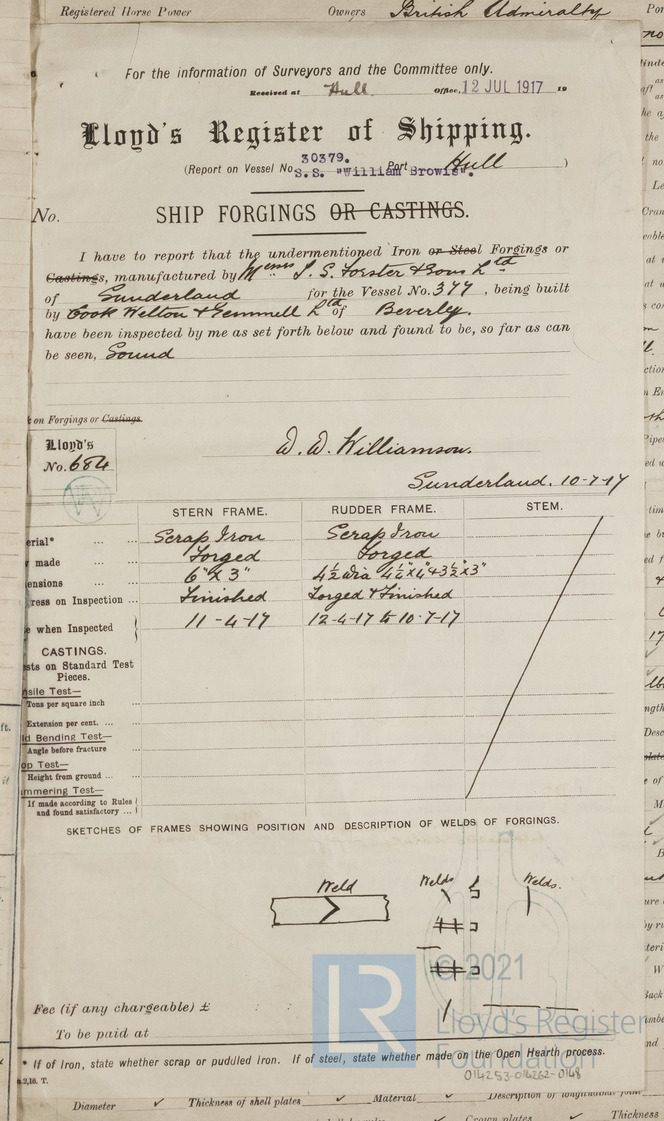 Registered Horse Power Owners British Admiralty
For the information of Surveyors and the Committee only.
Received at Hull Office, 12 JUL 1917 19
Lloyd's Register of Shipping.
(Report on Vessel No. 30379. Port Hull )
S.S. "William Browis".
No. SHIP FORGINGS OR CASTINGS.
I have to report that the undermentioned Iron or Steel Forgings or
Castings, manufactured by Messrs J. S. Forster & Sons Ltd
of Sunderland for the Vessel No. 377, being built
by Cook Welton & Gemmell Ltd of Beverly.
have been inspected by me as set forth below and found to be, so far as can
be seen, Sound
on Forgings or Castings.
Lloyd's
No. 684
W. W. Williamson.
Sunderland. 10-7-17
STERN FRAME. RUDDER FRAME. STEM.
erial* ... ... Scrap Iron Scrap Iron
made Forged Forged
ensions 6" x 3" 4½ dia 4½"x4"+3½"x3"
ress on Inspection ... Finished Forged & Finished
e when Inspected 11-4-17 12-4-17 to 10-7-17
CASTINGS.
sts on Standard Test
Pieces.
nsile Test—
Tons per square inch
Extension per cent. ... ...
ld Bending Test—
Angle before fracture
op Test—
Height from ground ... ...
mmering Test—
If made according to Rules
and found satisfactory ...
SKETCHES OF FRAMES SHOWING POSITION AND DESCRIPTION OF WELDS OF FORGINGS.
Weld Welds Welds.
LR © 2021
Lloyd's Register
Foundation
Fee (if any chargeable) £ : :
To be paid at
* If of Iron, state whether scrap or puddled iron. If of steel, state whether made on the Open Hearth process.
2,16. T.
014253-014262-0148
Diameter ✓ Thickness of shell plates ✓ Material ✓ Description of longitudinal joint
Crown plates ✓ Thickness